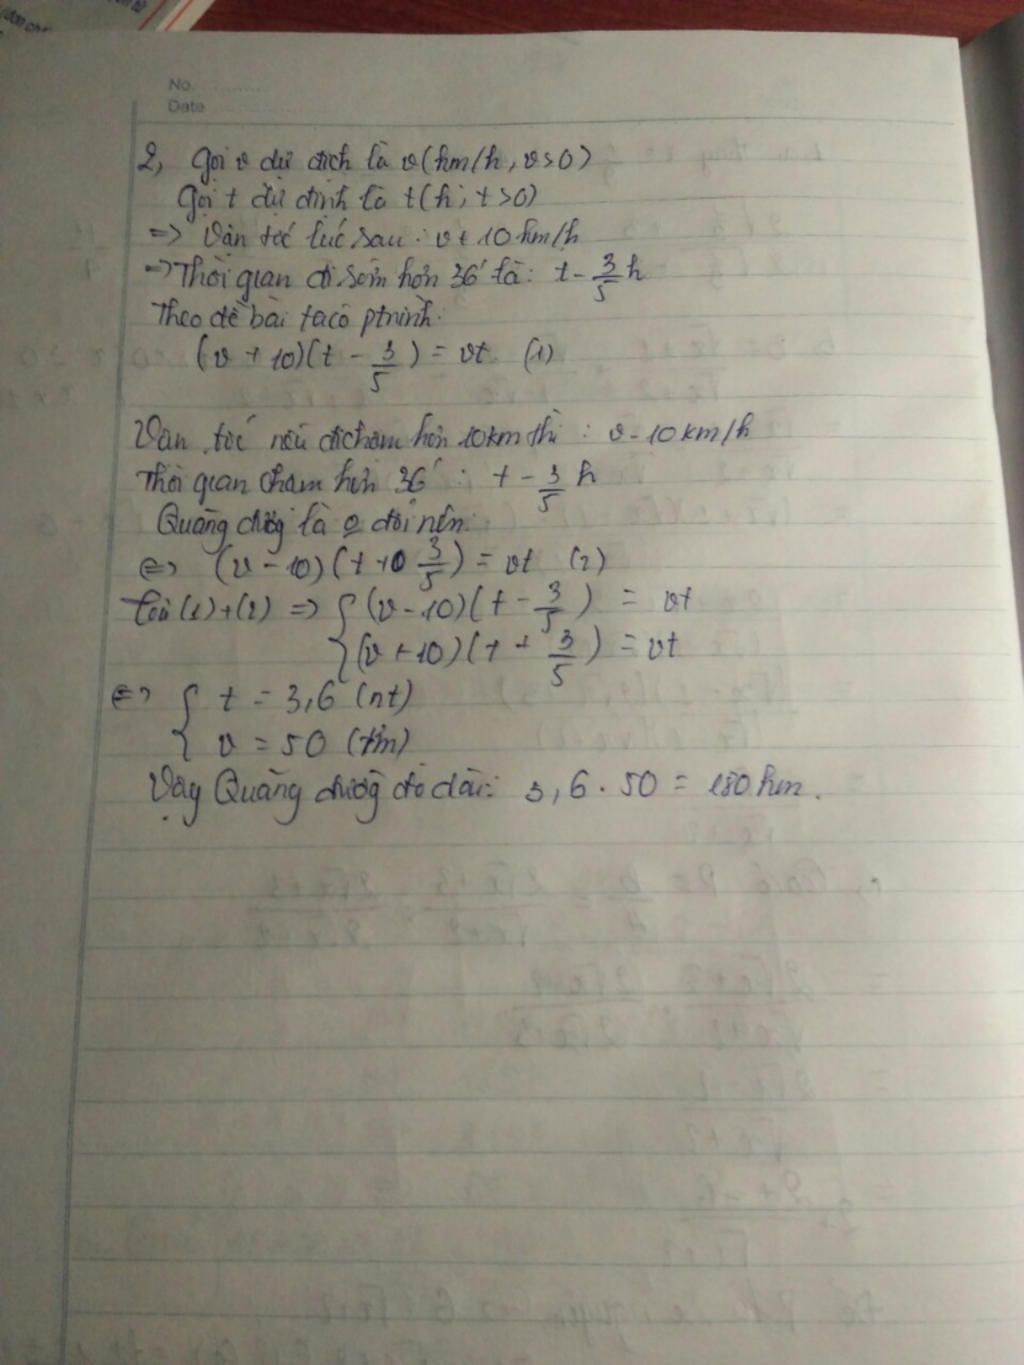 No.
Date
2, Gọi v dự đích là v(km/h, v>0)
Gọi t dự định là t(h; t>0)
=> Vận tốc lúc sau: v+10km/h
=> Thời gian đi sớm hơn 36' là: t - 3/5 h
Theo đề bài ta có ptrình:
(v + 10)(t - 3/5) = vt (1)
Vận tốc nếu đi chậm hơn 10km thì: v-10km/h
Thời gian chậm hơn 36': t - 3/5 h
Quãng đường là o đổi nên:
<=> (v-10)(t+0 3/5) = vt (2)
Từ (1)+(2) => { (v-10)(t - 3/5) = vt
(v+10)(t + 3/5) = vt
<=> { t = 3,6 (nt)
v = 50 (tm)
Vậy Quãng đường đó dài: 3,6 . 50 = 180 km.